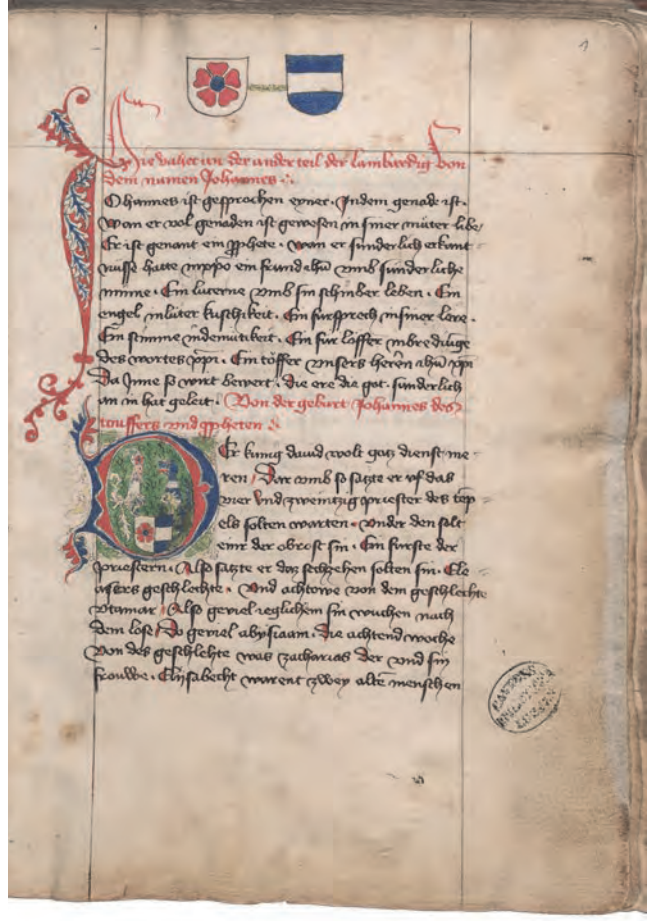 1
Hie vahet an der ander teil der lambardig von
dem namen Johannes
Ohannes ist gesprochen eyner. Indem genade ist.
Wan er vol genaden ist gewesen in siner muter libe
Er ist genant ein pphete. wan er sunderlich erkant
nusse hatte ein frund ihu vmb sunderliche
minne. Ein lucerne vmb sin schinber leben. Ein
engel in luter kuschikeit. Ein fursprech in siner lere.
Ein stimme in demutikeit. Ein fur löffer in bredinge
des wortes xpi. Ein töffer vnsers heren ihu xpi
Da Inne so wirt bewert. die ere die got. sunderlich
an in hat geleit. Von der geburt Johannes des
touffers vnd ppheten
Er kunig dauid wolt gotz dienst me
ren / Dar vmb so satzte er vf das
vier vnd zweintzig priester des temp
els solten warten. vnder den solt
einr der obrost sin. Ein furste der
priestern. Also satzte er daz sechzehen solten sin. Ele
asers geschlechte. Vnd achtowe von dem geschlechte
ytamar / Also geviel ieglichem sin wuchen nach
dem lose / Do geviel abysiaam. die achtend woche
Von des geschlehte was zacharias der vnd sin
frouwe. Elysabecht warent zwey alte menschen
KANTONS
BIBLIOTHEK
LUZERN